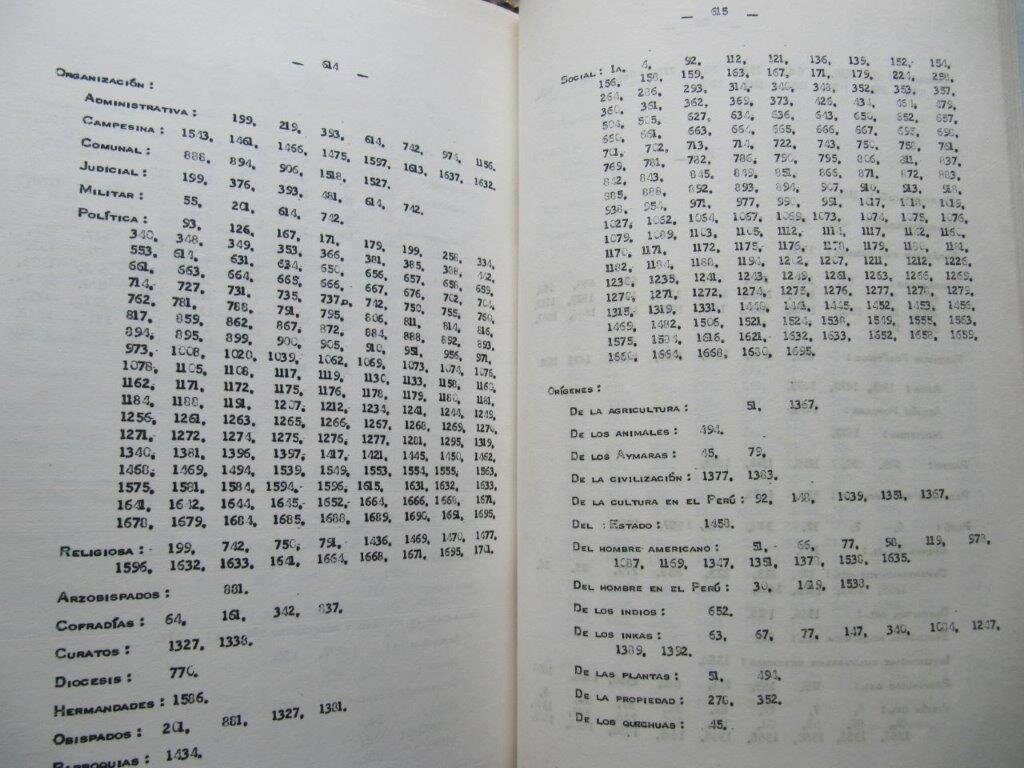 — 614 —
ORGANIZACIÓN :
ADMINISTRATIVA : 199, 219, 393, 614, 742, 974, 1156.
CAMPESINA : 1543, 1461, 1466, 1475, 1597, 1613, 1637, 1632.
COMUNAL : 888, 894, 906, 1518, 1527.
JUDICIAL : 199, 376, 393, 481, 614, 742.
MILITAR : 55, 201, 614, 742.
POLÍTICA : 93, 126, 167, 171, 179, 199, 258, 334,
340, 348, 349, 353, 366, 381, 385, 442,
553, 614, 631, 634, 650, 656, 657, 658, 659,
661, 663, 664, 665, 666, 667, 676, 702, 704,
714, 727, 731, 735, 737, 742, 750, 755, 760,
762, 781, 788, 791, 795, 806, 811, 814, 816,
817, 859, 862, 867, 872, 884, 888, 892, 893,
894, 895, 899, 900, 905, 910, 951, 956, 971,
973, 1008, 1020, 1039, 1062, 1069, 1073, 1074, 1076,
1078, 1105, 1108, 1117, 1119, 1130, 1133, 1158, 1160,
1162, 1171, 1172, 1175, 1176, 1178, 1179, 1180, 1181,
1184, 1188, 1191, 1207, 1212, 1234, 1241, 1244, 1249,
1256, 1261, 1263, 1265, 1266, 1267, 1268, 1269, 1270,
1271, 1272, 1274, 1275, 1276, 1277, 1281, 1295, 1319,
1340, 1381, 1396, 1397, 1417, 1421, 1445, 1450, 1462,
1468, 1469, 1494, 1539, 1549, 1553, 1554, 1555, 1563,
1575, 1581, 1584, 1594, 1596, 1615, 1631, 1632, 1633,
1641, 1642, 1644, 1645, 1652, 1664, 1666, 1668, 1671,
1678, 1679, 1684, 1685, 1688, 1689, 1690, 1691, 1695.
RELIGIOSA : 199, 742, 750, 791, 1436, 1469, 1470, 1477,
1596, 1632, 1633, 1641, 1664, 1668, 1671, 1695, 1701.
ARZOBISPADOS : 881.
COFRADÍAS : 64, 161, 342, 837.
CURATOS : 1327, 1338.
DIOCESIS : 770.
HERMANDADES : 1586.
OBISPADOS : 201, 881, 1327, 1381.
PARROQUIAS : 1434.
— 615 —
SOCIAL : 1A. 4, 92, 112, 121, 136, 139, 152, 154,
156, 158, 159, 163, 167, 171, 179, 224, 258,
264, 286, 293, 314, 340, 348, 352, 353, 357,
360, 361, 362, 369, 373, 426, 434, 464, 479,
504, 505, 627, 634, 636, 643, 650, 652, 657,
660, 661, 663, 664, 665, 666, 667, 698,
701, 702, 713, 714, 722, 743, 750, 758, 761,
769, 781, 782, 786, 790, 795, 806, 811, 837,
842, 843, 845, 849, 851, 866, 871, 872, 883,
885, 888, 892, 893, 894, 907, 910, 913, 918,
938, 954, 971, 977, 990, 991, 1017, 1018, 1019,
1027, 1062, 1064, 1067, 1069, 1073, 1074, 1075, 1076,
1079, 1089, 1103, 1105, 1112, 1114, 1117, 1142, 1160,
1170, 1171, 1172, 1175, 1176, 1178, 1179, 1180, 1181,
1182, 1184, 1188, 1194, 1202, 1207, 1211, 1212, 1226,
1230, 1235, 1241, 1243, 1249, 1261, 1263, 1266, 1269,
1270, 1271, 1272, 1274, 1275, 1276, 1277, 1278, 1279,
1315, 1319, 1331, 1440, 1441, 1445, 1452, 1453, 1456,
1469, 1482, 1506, 1521, 1524, 1538, 1549, 1555, 1563,
1575, 1584, 1616, 1621, 1632, 1633, 1652, 1658, 1659,
1660, 1664, 1668, 1680, 1695.
ORÍGENES :
DE LA AGRICULTURA : 51, 1367.
DE LOS ANIMALES : 494.
DE LOS AYMARAS : 45, 79.
DE LA CIVILIZACIÓN : 1377, 1383.
DE LA CULTURA EN EL PERÚ : 92, 148, 1039, 1351, 1367.
DEL :ESTADO : 1458.
DEL HOMBRE AMERICANO : 51, 66, 77, 98, 119, 973,
1087, 1169, 1347, 1351, 1373, 1538, 1635.
DEL HOMBRE EN EL PERÚ : 30, 1419, 1530.
DE LOS INDIOS : 652.
DE LOS INKAS : 63, 67, 77, 147, 340, 1084, 1247,
1389, 1392.
DE LAS PLANTAS : 51, 494.
DE LA PROPIEDAD : 276, 352.
DE LOS QUECHUAS : 45.